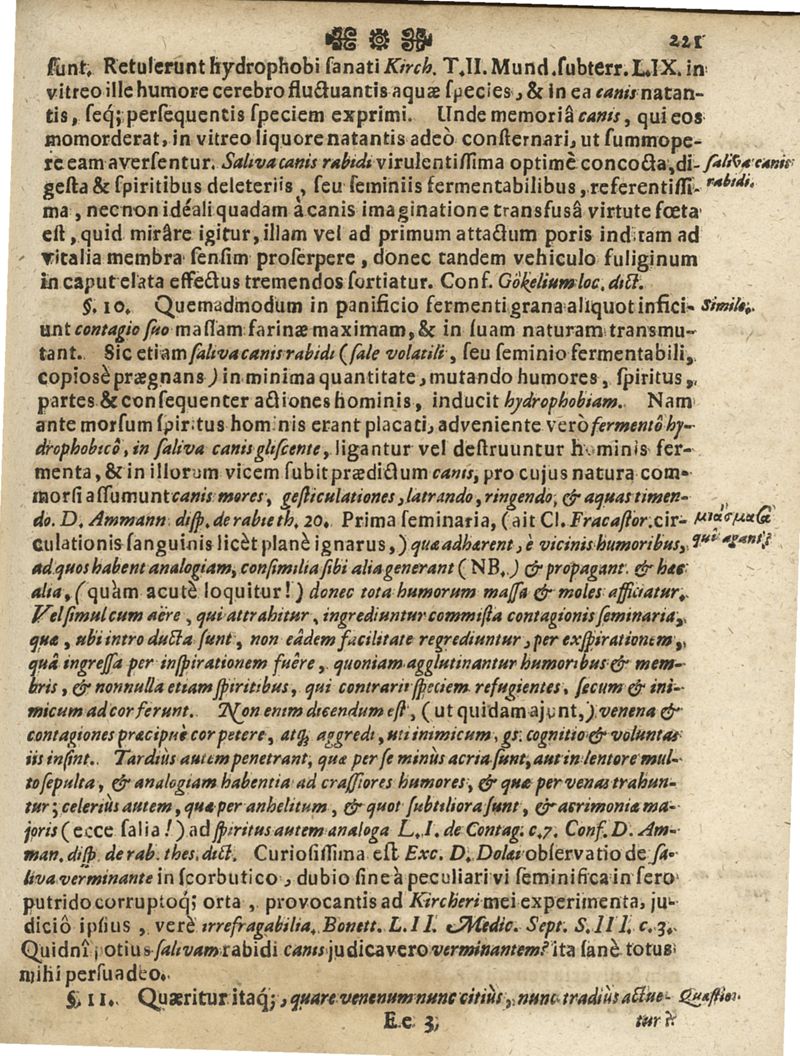 221
sunt. Retulerunt hydrophobi sanati Kirch. T.II. Mund.subterr.L.IX. in
vitreo ille humore cerebro fluctuantis aquæ species, & in ea canis natan-
tis, seq; persequentis speciem exprimi. Unde memoriâ canis, qui eos
momorderat, in vitreo liquore natantis adeò consternari, ut summope-
re eam aversentur. Saliva canis rabidi virulentissima optimè concocta, di-
saliva canis
gesta & spiritibus deleteriis, seu seminiis fermentabilibus, referentissi-
rabidi.
ma, necnon idéali quadam à canis imaginatione transfusâ virtute fœta
est, quid mirâre igitur, illam vel ad primum attactum poris inditam ad
vitalia membra sensim proserpere, donec tandem vehiculo fuliginum
in caput elata effectus tremendos sortiatur. Conf. Gökelium loc. dict.
§. 10. Quemadmodum in panificio fermenti grana aliquot infici-
Simile.
unt contagio suo massam farinæ maximam, & in suam naturam transmu-
tant. Sic etiam saliva canis rabidi (sale volatili, seu seminio fermentabili,
copiosè prægnans) in minima quantitate, mutando humores, spiritus,
partes & consequenter actiones hominis, inducit hydrophobiam. Nam
ante morsum spiritus hominis erant placati, adveniente verò fermentô hy-
drophobicô, in saliva canis gliscente, ligantur vel destruuntur hominis fer-
menta, & in illorum vicem subit prædictum canis, pro cujus natura com-
morsi assumunt canis mores, gesticulationes, latrando, ringendo, & aquas timen-
do. D. Ammann disp. de rabie th. 20. Prima seminaria, (ait Cl. Fracastor. cir-
μιάσματα
culationis sanguinis licèt planè ignarus,) quæ adhærent, è vicinis humoribus,
quî agant?
ad quos habent analogiam, consimilia sibi alia generant (NB.) & propagant. & hæc
alia, (quàm acutè loquitur!) donec tota humorum massa & moles afficiatur.
Vel simul cum aëre, qui attrahitur, ingrediuntur commista contagionis seminaria,
quæ, ubi intro ducta sunt, non eâdem facilitate regrediuntur, per exspirationem,
quâ ingressa per inspirationem fuêre, quoniam agglutinantur humoribus & mem-
bris, & nonnulla etiam spiritibus, qui contrarii speciem refugientes, secum & ini-
micum ad cor ferunt. Non enim dicendum est, (ut quidam ajunt,) venena &
contagiones præcipuè cor petere, atq; aggredi, uti inimicum, qs. cognitio & voluntas
iis insint. Tardiùs autem penetrant, quæ per se minùs acria sunt, aut in lentore mul-
to sepulta, & analogiam habentia ad crassiores humores, & quæ per venas trahun-
tur; celeriùs autem, quæ per anhelitum, & quot subtiliora sunt, & acrimonia ma-
joris (ecce salia!) ad spiritus autem analoga L. I. de Contag. c. 7. Conf. D. Am-
man. disp. de rab. thes. dict. Curiosissima est Exc. D. Dolæi observatio de sa-
liva verminante in scorbutico, dubio sine à peculiari vi seminifica in sero
putrido corruptoq; orta, provocantis ad Kircheri mei experimenta, ju-
diciô ipsius, verè irrefragabilia, Bonett. L. II. Medic. Sept. S. III. c. 3.
Quidnî potius salivam rabidi canis judicavero verminantem? ita sanè totus
mihi persuadeo.
§. 11. Quæritur itaq;, quare venenum nunc citiùs, nunc tradiùs actue-
Quæstion.
Ee 3
tur?